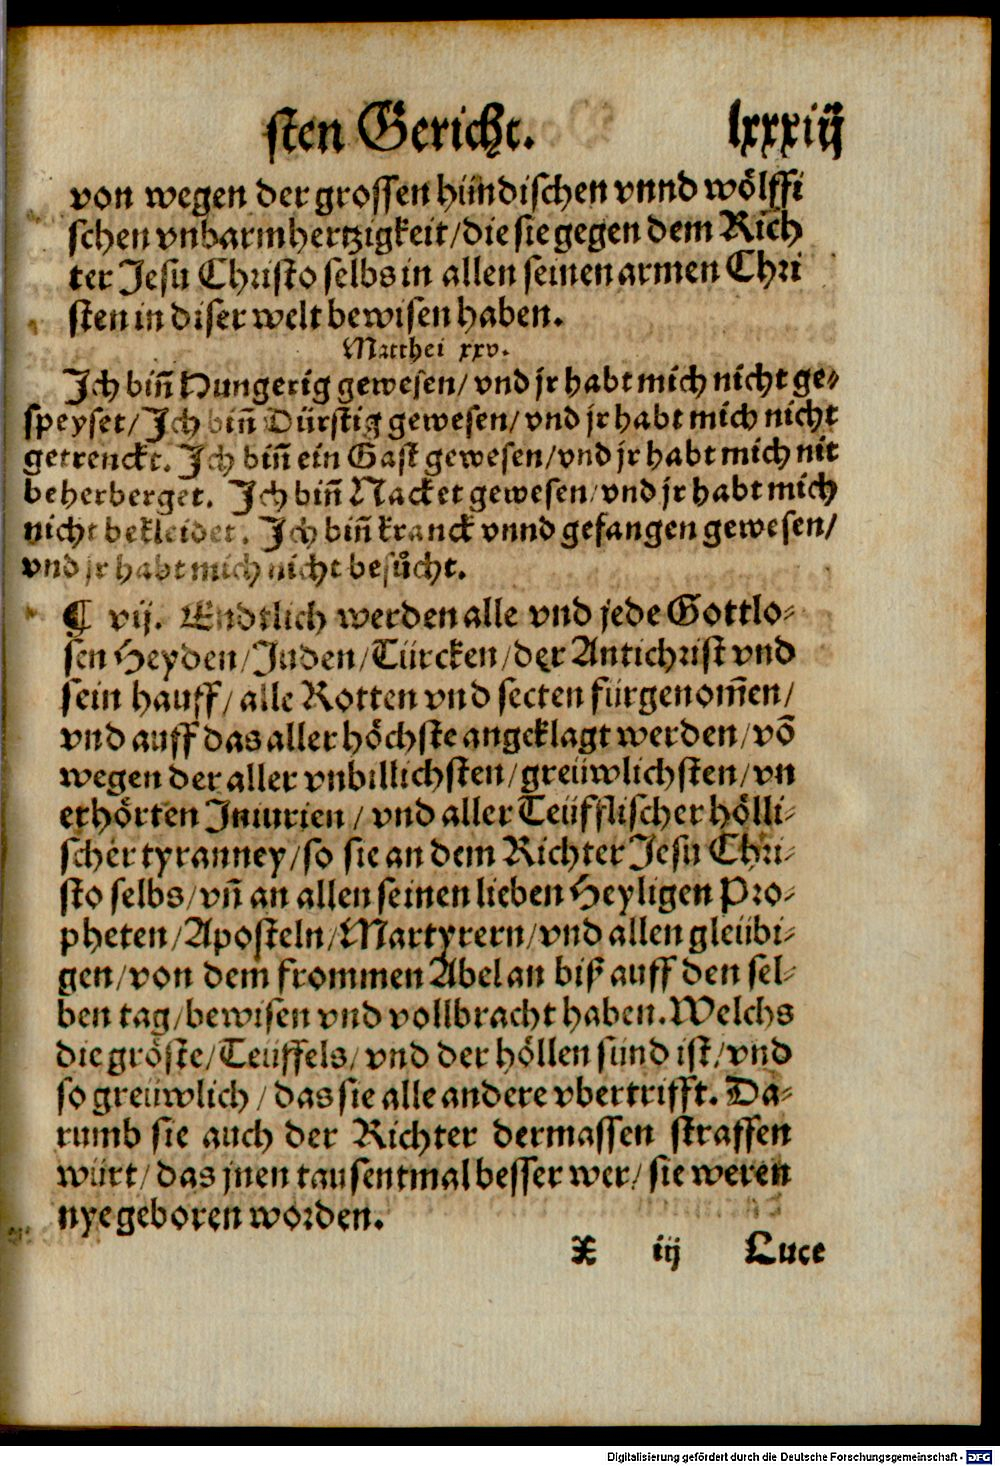 sten Gericht. lxxxiij
von wegen der grossen hündischen vnnd wölffi
schen vnbarmhertzigkeit/die sie gegen dem Rich
ter Jesu Christo selbs in allen seinen armen Chri
sten in diser welt bewisen haben.
Matthei xxv.
Ich biñ Hungerig gewesen/ vnd jr habt mich nicht ge-
speyset/ Ich biñ Dürstig gewesen/ vnd jr habt mich nicht
getrenckt. Ich biñ ein Gast gewesen/vnd jr habt mich nit
beherberget. Ich biñ Nacket gewesen/vnd jr habt mich
nicht bekleidet. Ich biñ kranck vnnd gefangen gewesen/
vnd jr habt mich nicht besůcht.
¶ vij. Endtlich werden alle vnd jede Gottlo-
sen Heyden/Juden/Türcken/der Antichrist vnd
sein hauff/ alle Rotten vnd secten fürgenom̃en/
vnd auff das aller höchste angeklagt werden/võ
wegen der aller vnbillichsten/greüwlichsten/vn
erhörten Iniurien/ vnd aller Teüfflischer hölli-
scher tyranney/so sie an dem Richter Jesu Chri-
sto selbs/vñ an allen seinen lieben Heyligen Pro-
pheten/Aposteln/Martyrern/vnd allen gleübi-
gen/von dem frommen Abel an biß auff den sel-
ben tag/bewisen vnd vollbracht haben. Welchs
die gröste/Teüffels/ vnd der höllen sünd ist/vnd
so greüwlich/das sie alle andere vbertrifft. Da-
rumb sie auch der Richter dermassen straffen
würt/das jnen tausentmal besser wer/ sie weren
nye geboren worden.
X iij Luce
Digitalisierung gefördert durch die Deutsche Forschungsgemeinschaft - DFG